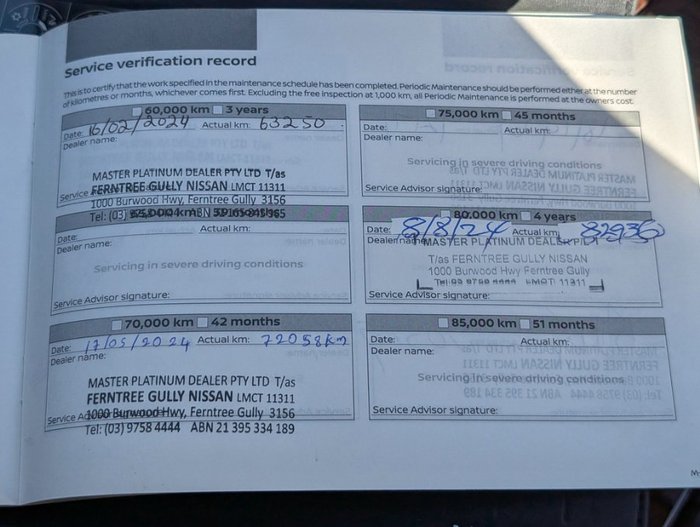 Service verification record
This is to certify that the work specified in the maintenance schedule has been completed. Periodic Maintenance should be performed either at the number
of kilometres or months, whichever comes first. Excluding the free inspection at 1,000 km, all Periodic Maintenance is performed at the owners cost.
60,000 km 3 years
Date: 16/02/2024 Actual km: 63250
Dealer name:
MASTER PLATINUM DEALER PTY LTD T/as
FERNTREE GULLY NISSAN LMCT 11311
1000 Burwood Hwy, Ferntree Gully 3156
Tel: (03)
Date: Actual km:
Dealer name:
Servicing in severe driving conditions
Service Advisor signature:
70,000 km 42 months
Date: 17/05/2024 Actual km: 72058km
Dealer name:
MASTER PLATINUM DEALER PTY LTD T/as
FERNTREE GULLY NISSAN LMCT 11311
1000 Burwood Hwy, Ferntree Gully 3156
Tel: (03) 9758 4444 ABN 21 395 334 189
75,000 km 45 months
Date: Actual km:
Dealer name:
Servicing in severe driving conditions
Service Advisor signature:
80,000 km 4 years
Date: 8/8/24 Actual km: 82936
Dealer name:
MASTER PLATINUM DEALER
T/as FERNTREE GULLY NISSAN
1000 Burwood Hwy Ferntree Gully
Tel: 03 9758 4444 LMCT 11311
Service Advisor signature:
85,000 km 51 months
Date: Actual km:
Dealer name:
Servicing in severe driving conditions
Service Advisor signature: